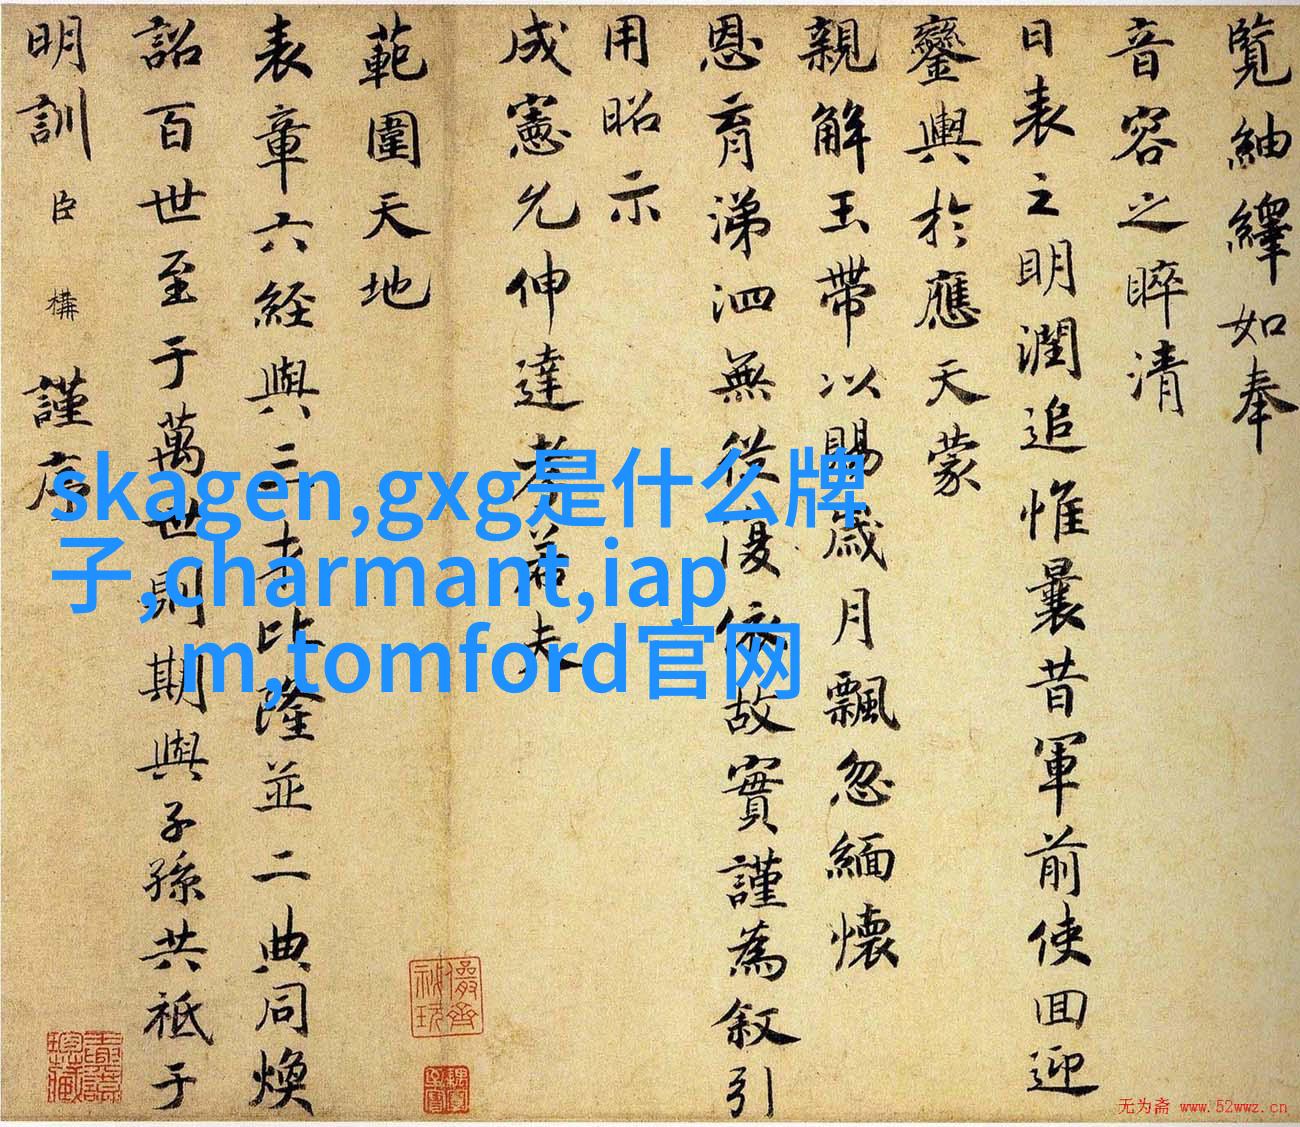 覽紬繹如奉
音容之晬清
日表之明潤追惟曩昔軍前使回迎
鑾輿於應天蒙
親解玉帶以賜歲月飄忽緬懷
恩育涕泗無從復依故實謹為叙引
用昭示
成憲允伸達孝若夫
範圍天地
表章六經與三才比隆並二典同煥
詔百世至于萬世則期與子孫共祗于
明訓臣構謹序
skagen,gxg是什么牌
子,charmant,iap
m,tomford官网
无为斋 www.52wwz.cn